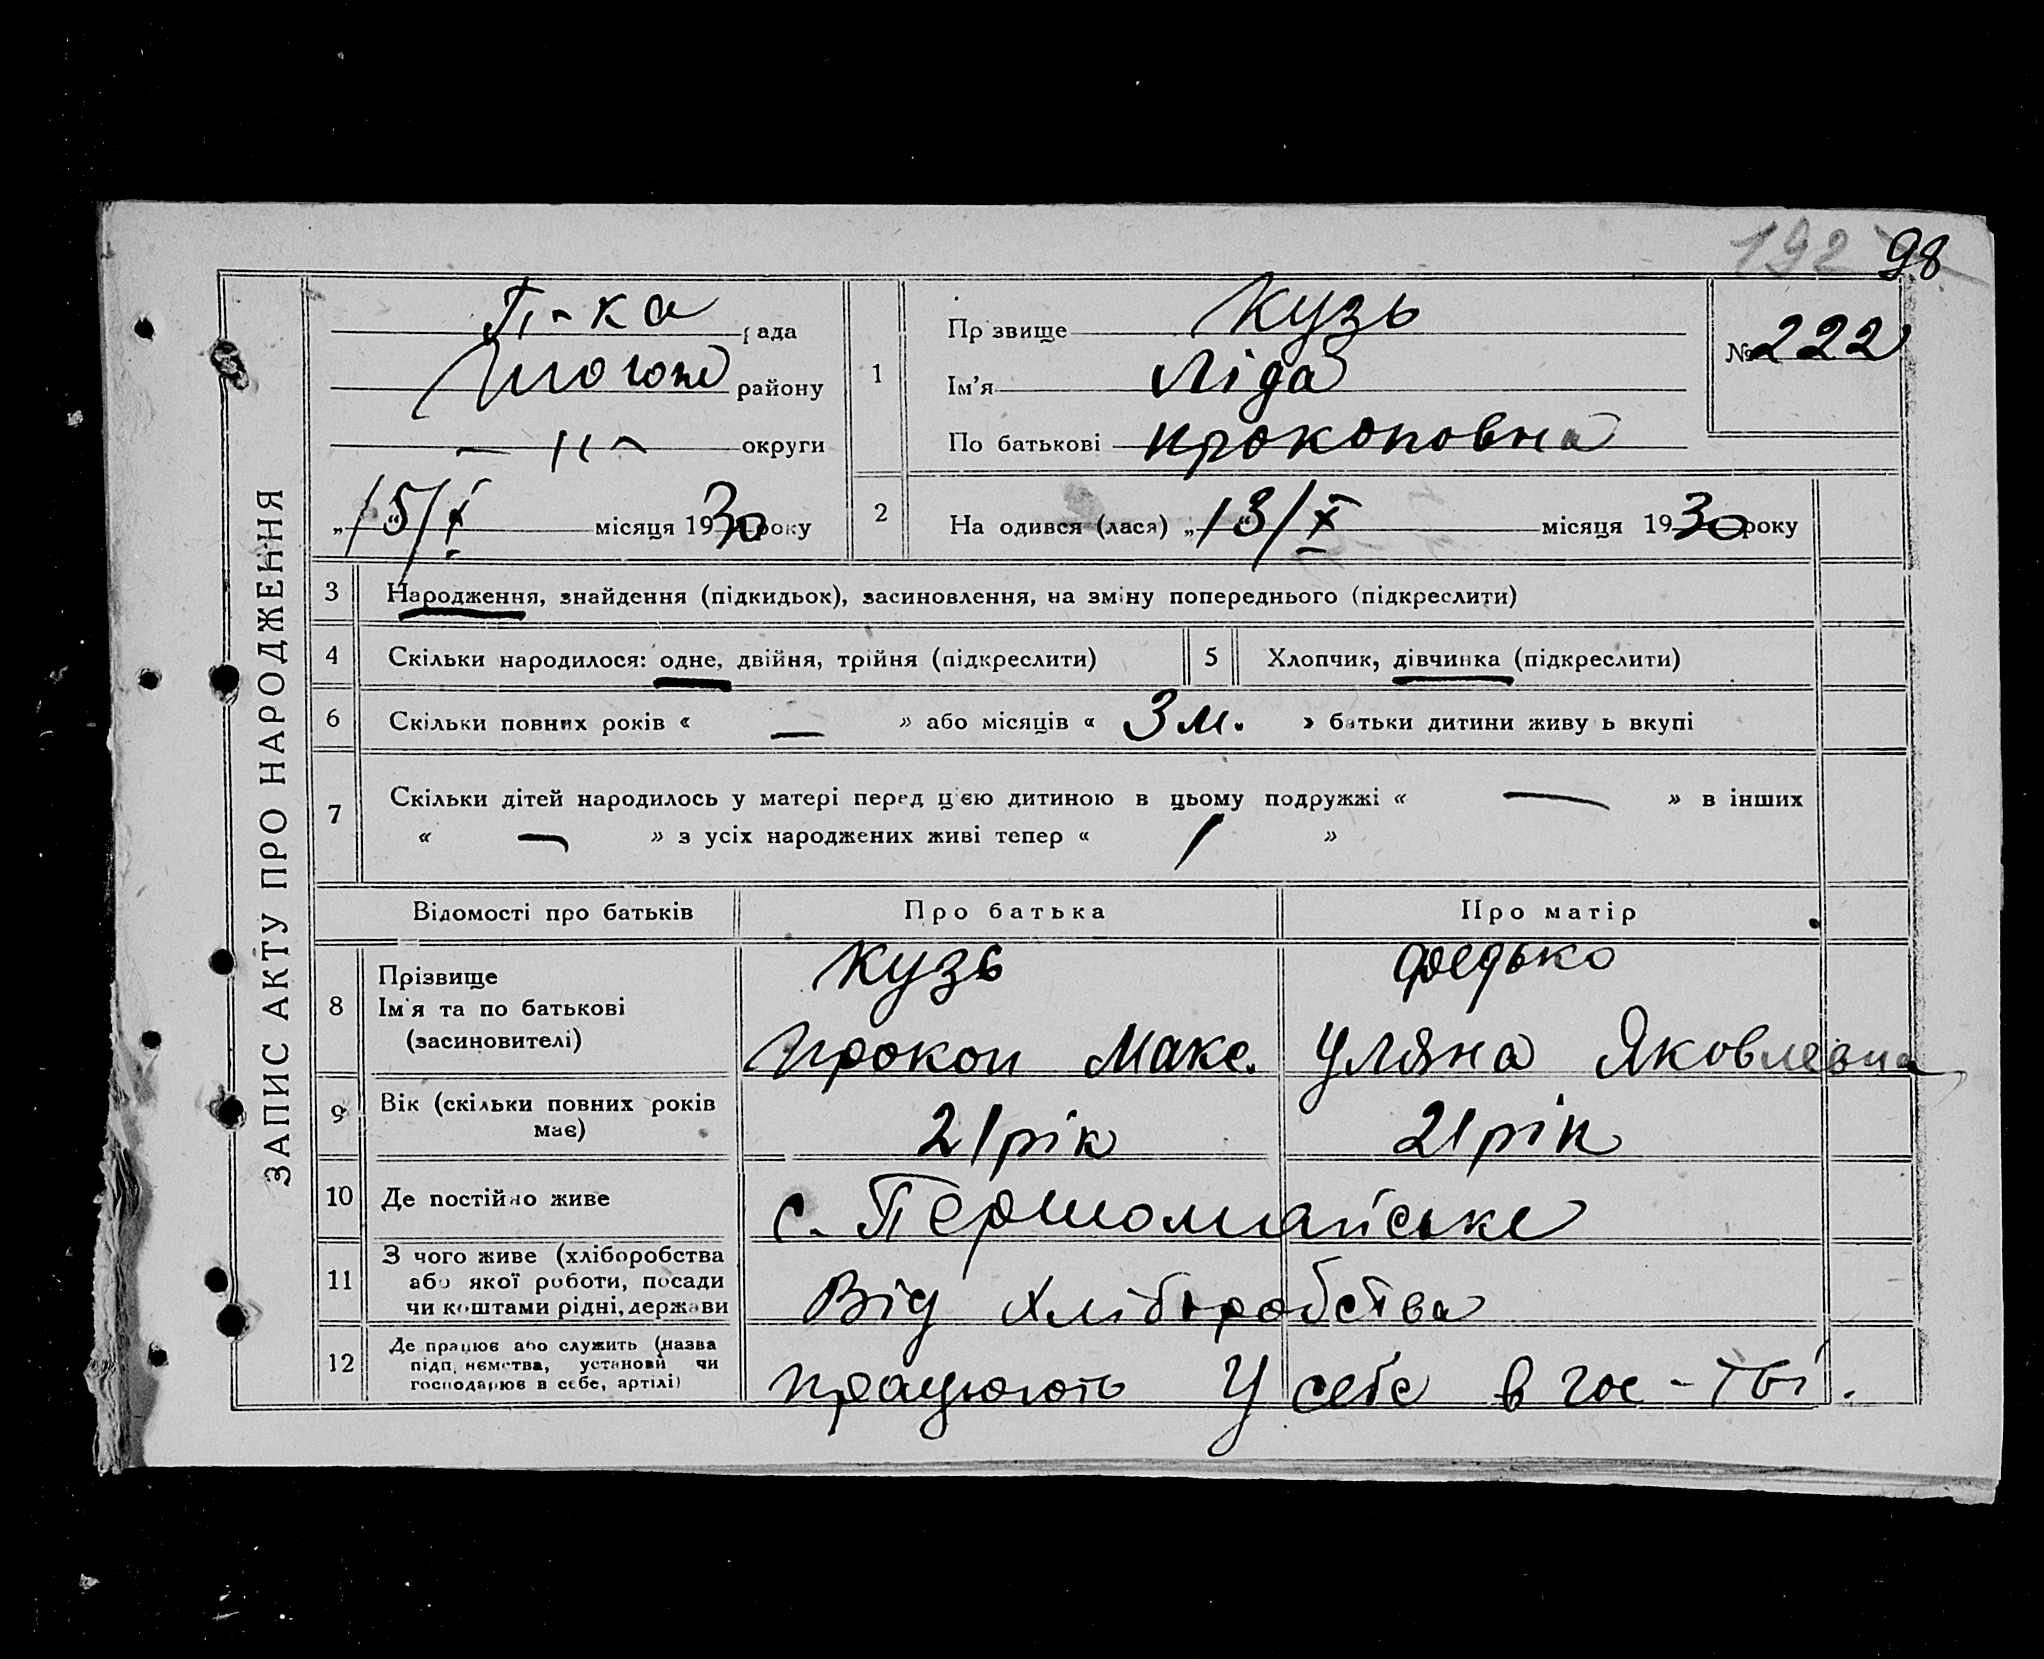 98
ЗАПИС АКТУ ПРО НАРОДЖЕННЯ
П-ка рада
району
—〃— округи
„15/X місяця 1930 року
1
Прізвище Кузь
Ім’я Ліда
По батькові Прокоповна
№ 222
2 Народився (лася) „13/X місяця 1930 року
3 Народження, знайдення (підкидьок), засиновлення, на зміну попереднього (підкреслити)
4 Скільки народилося: одне, двійня, трійня (підкреслити)
5 Хлопчик, дівчинка (підкреслити)
6 Скільки повних років « — » або місяців « 3 м. » батьки дитини живуть вкупі
7 Скільки дітей народилось у матері перед цією дитиною в цьому подружжі « — » в інших
« — » з усіх народжених живі тепер « 1 »
Відомості про батьків Про батька Про матір
8 Прізвище
Ім’я та по батькові
(засиновителі)
Кузь
Прокоп Макс.
Федько
Уляна Яковлевна
9 Вік (скільки повних років
має)
21 рік
21 рік
10 Де постійно живе
с. Першомайське
11 З чого живе (хліборобства
або якої роботи, посади
чи коштами рідні, держави
Від хліборобства
12 Де працює або служить (назва
підприємства, установи чи
господарює в себе, артілі)
Працюють У себе в гос-тві.